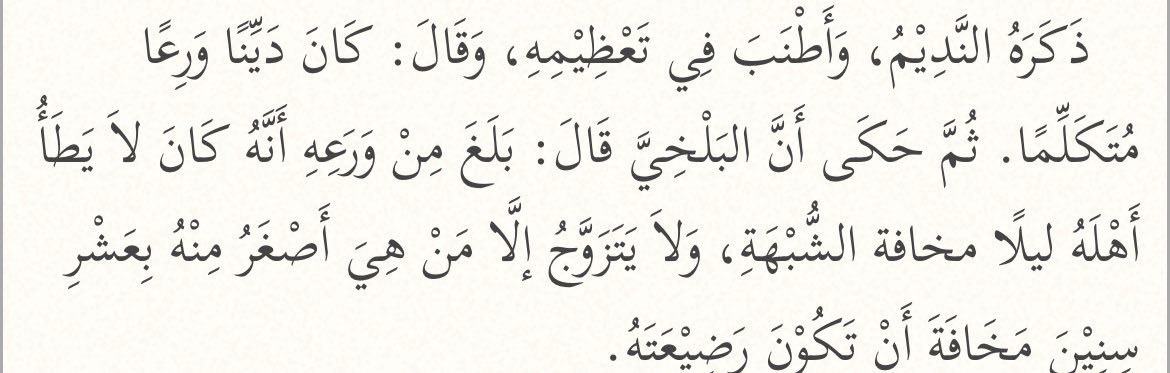 ذَكَرَهُ النَّدِيْمُ، وَأَطْنَبَ فِي تَعْظِيْمِهِ، وَقَالَ: كَانَ دَيِّنًا وَرِعًا
مُتَكَلِّمًا. ثُمَّ حَكَى أَنَّ البَلْخِيَّ قَالَ: بَلَغَ مِنْ وَرَعِهِ أَنَّهُ كَانَ لاَ يَطَأُ
أَهْلَهُ ليلًا مخافة الشُّبْهَةِ، وَلاَ يَتَزَوَّجُ إلَّا مَنْ هِيَ أَصْغَرُ مِنْهُ بِعَشْرِ
سِنِيْنَ مَخَافَةَ أَنْ تَكُوْنَ رَضِيْعَتَهُ.